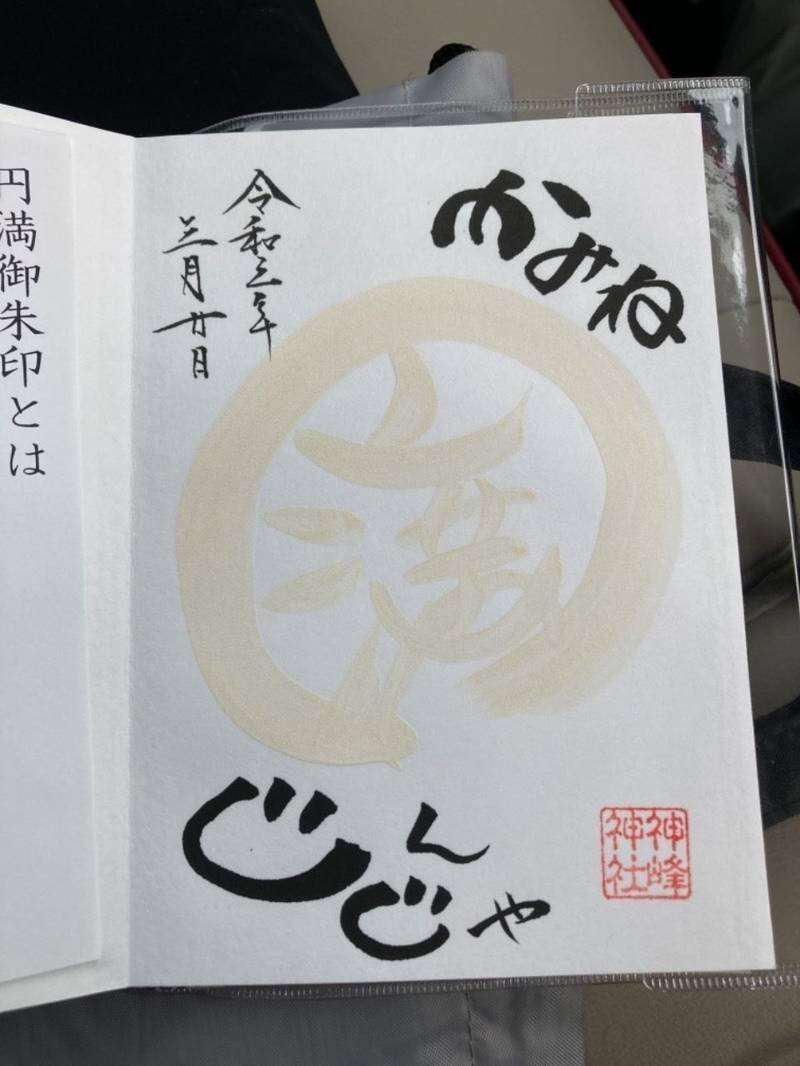 かみね
令和三年
三月廿日
満
じんじゃ
神峰
神社
円満御朱印とは